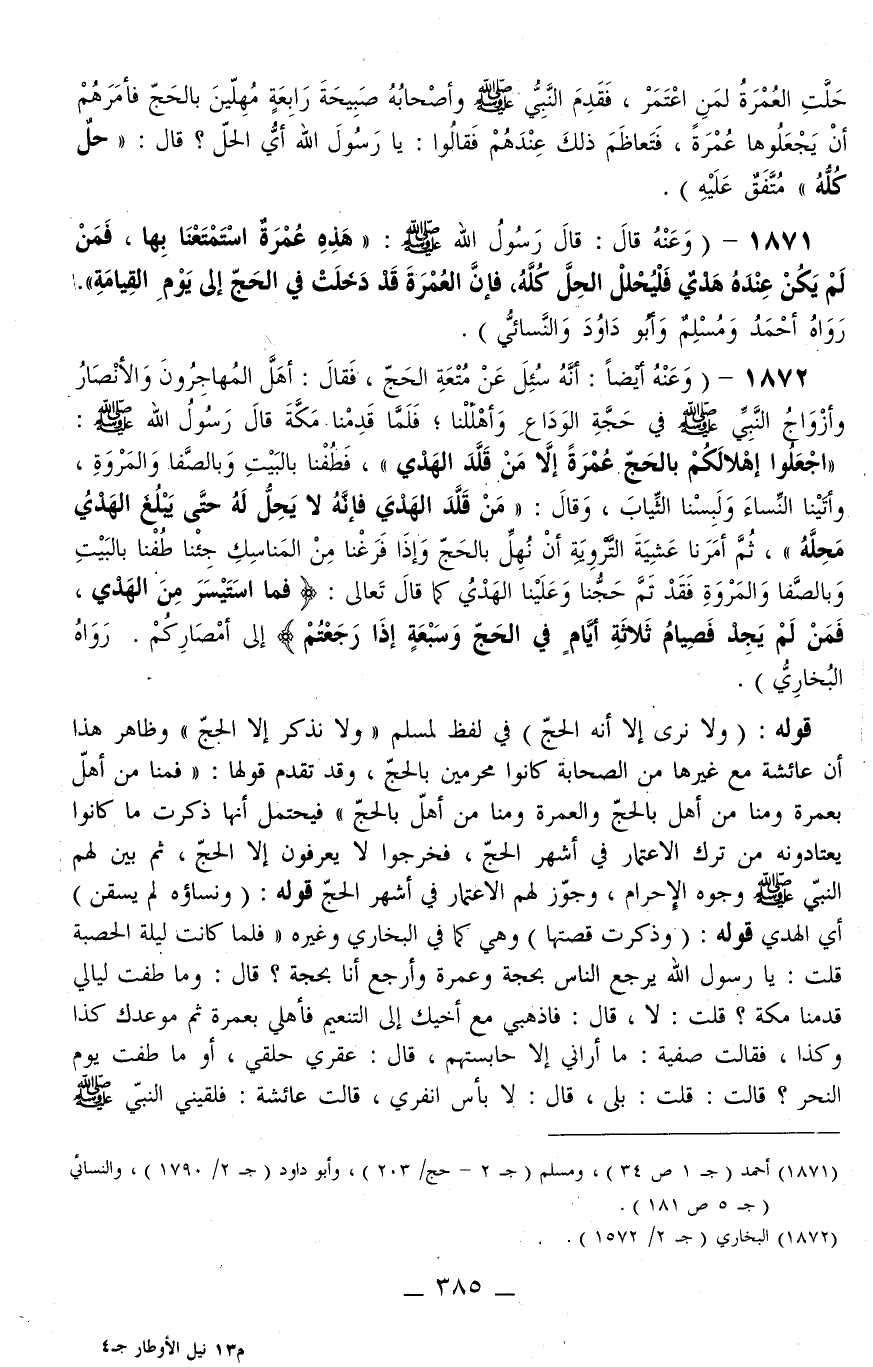 حَلَّتِ العُمْرَةُ لمَنِ اعْتَمَرْ ، فَقَدِمَ النَّبِيُّ ﷺ وأصْحابُهُ صَبِيحَةَ رَابِعَةٍ مُهِلّينَ بالحَجّ فأمَرَهُمْ
أنْ يَجْعَلُوها عُمْرَةً ، فَتَعاظَمَ ذلكَ عِنْدَهُمْ فَقالُوا : يا رَسُولَ الله أيُّ الحلّ ؟ قال : « حلٌّ
كُلُّهُ » مُتَّفَقٌ عَلَيْهِ ) .
١٨٧١ – ( وَعَنْهُ قالَ : قالَ رَسُولُ الله ﷺ : « هَذِهِ عُمْرَةٌ اسْتَمْتَعْنَا بِها ، فَمَنْ
لَمْ يَكُنْ عِنْدَهُ هَدْيٌ فَلْيُحْللْ الحِلَّ كُلَّهُ، فإنَّ العُمْرَةَ قَدْ دَخَلَتْ في الحَجّ إلى يَوْمِ القِيامَةِ».
رَوَاهُ أحْمَدُ وَمُسْلِمٌ وَأبُو دَاوُدَ وَالنَّسائيُّ ) .
١٨٧٢ – ( وَعَنْهُ أيْضاً : أنَّهُ سُئِلَ عَنْ مُتْعَةِ الحَجّ ، فَقالَ : أهَلَّ المُهاجِرُونَ وَالأنْصَارُ
وأزْوَاجُ النَّبِيِّ ﷺ في حَجَّةِ الوَدَاعِ وَأهْلَلْنا ؛ فَلَمَّا قَدِمْنا مَكَّةَ قالَ رَسُولُ الله ﷺ :
«اجْعَلُوا إهْلالَكُمْ بالحَجّ عُمْرَةً إلَّا مَنْ قَلَّدَ الهَدْي » ، فَطُفْنا بالبَيْتِ وَبالصَّفا وَالمَرْوَةِ ،
وأتَيْنا النِّساءَ وَلَبِسْنا الثِّيابَ ، وَقالَ : « مَنْ قَلَّدَ الهَدْيَ فانَّهُ لا يَحِلُّ لَهُ حتَّى يَبْلُغَ الهَدْيُ
مَحِلَّهُ » ، ثُمَّ أمَرَنا عَشِيَةَ التَّرْوِيَةِ أنْ نُهِلَّ بالحَجّ وَإذَا فَرَغْنا مِنْ المَناسِكِ جِئْنا طُفْنا بالبَيْتِ
وَبالصَّفا وَالمَرْوَةِ فَقَدْ تَمَّ حَجُّنا وَعَلَيْنا الهَدْيُ كما قالَ تَعالى : ﴿ فما اسْتَيْسَرَ مِنَ الهَدْي ،
فَمَنْ لَمْ يَجِدْ فَصِيامُ ثَلاثَةِ أيَّامٍ في الحَجّ وَسَبْعَةٍ إذَا رَجَعْتُمْ ﴾ إلى أمْصَارِكُمْ . رَوَاهُ
البُخارِيُّ ) .
قوله : ( ولا نرى إلا أنه الحجّ ) في لفظ لمسلم « ولا نذكر إلا الحجّ » وظاهر هذا
أن عائشة مع غيرها من الصحابة كانوا محرمين بالحجّ ، وقد تقدم قولها : « فمنا من أهلّ
بعمرة ومنا من أهل بالحجّ والعمرة ومنا من أهلّ بالحجّ » فيحتمل أنها ذكرت ما كانوا
يعتادونه من ترك الاعتمار في أشهر الحجّ ، فخرجوا لا يعرفون إلا الحجّ ، ثم بين لهم
النبيّ ﷺ وجوه الإحرام ، وجوّز لهم الاعتمار في أشهر الحجّ قوله : ( ونساؤه لم يسقن )
أي الهدي قوله : ( وذكرت قصتها ) وهي كما في البخاري وغيره « فلما كانت ليلة الحصبة
قلت : يا رسول الله يرجع الناس بحجة وعمرة وأرجع أنا بحجة ؟ قال : وما طفت ليالي
قدمنا مكة ؟ قلت : لا ، قال : فاذهبي مع أخيك إلى التنعيم فأهلي بعمرة ثم موعدك كذا
وكذا ، فقالت صفية : ما أراني إلا حابستهم ، قال : عقري حلقي ، أو ما طفت يوم
النحر ؟ قالت : قلت : بلى ، قال : لا بأس انفري ، قالت عائشة : فلقيني النبيّ ﷺ
(١٨٧١) أحمد ( جـ ١ ص ٣٤ ) ، ومسلم ( جـ ٢ – حج/ ٢٠٣ ) ، وأبو داود ( جـ ٢/ ١٧٩٠ ) ، والنسائي
( جـ ٥ ص ١٨١ ) .
(١٨٧٢) البخاري ( جـ ٢/ ١٥٧٢ ) .
— ٣٨٥ —
م١٣ نيل الأوطار جـ٤